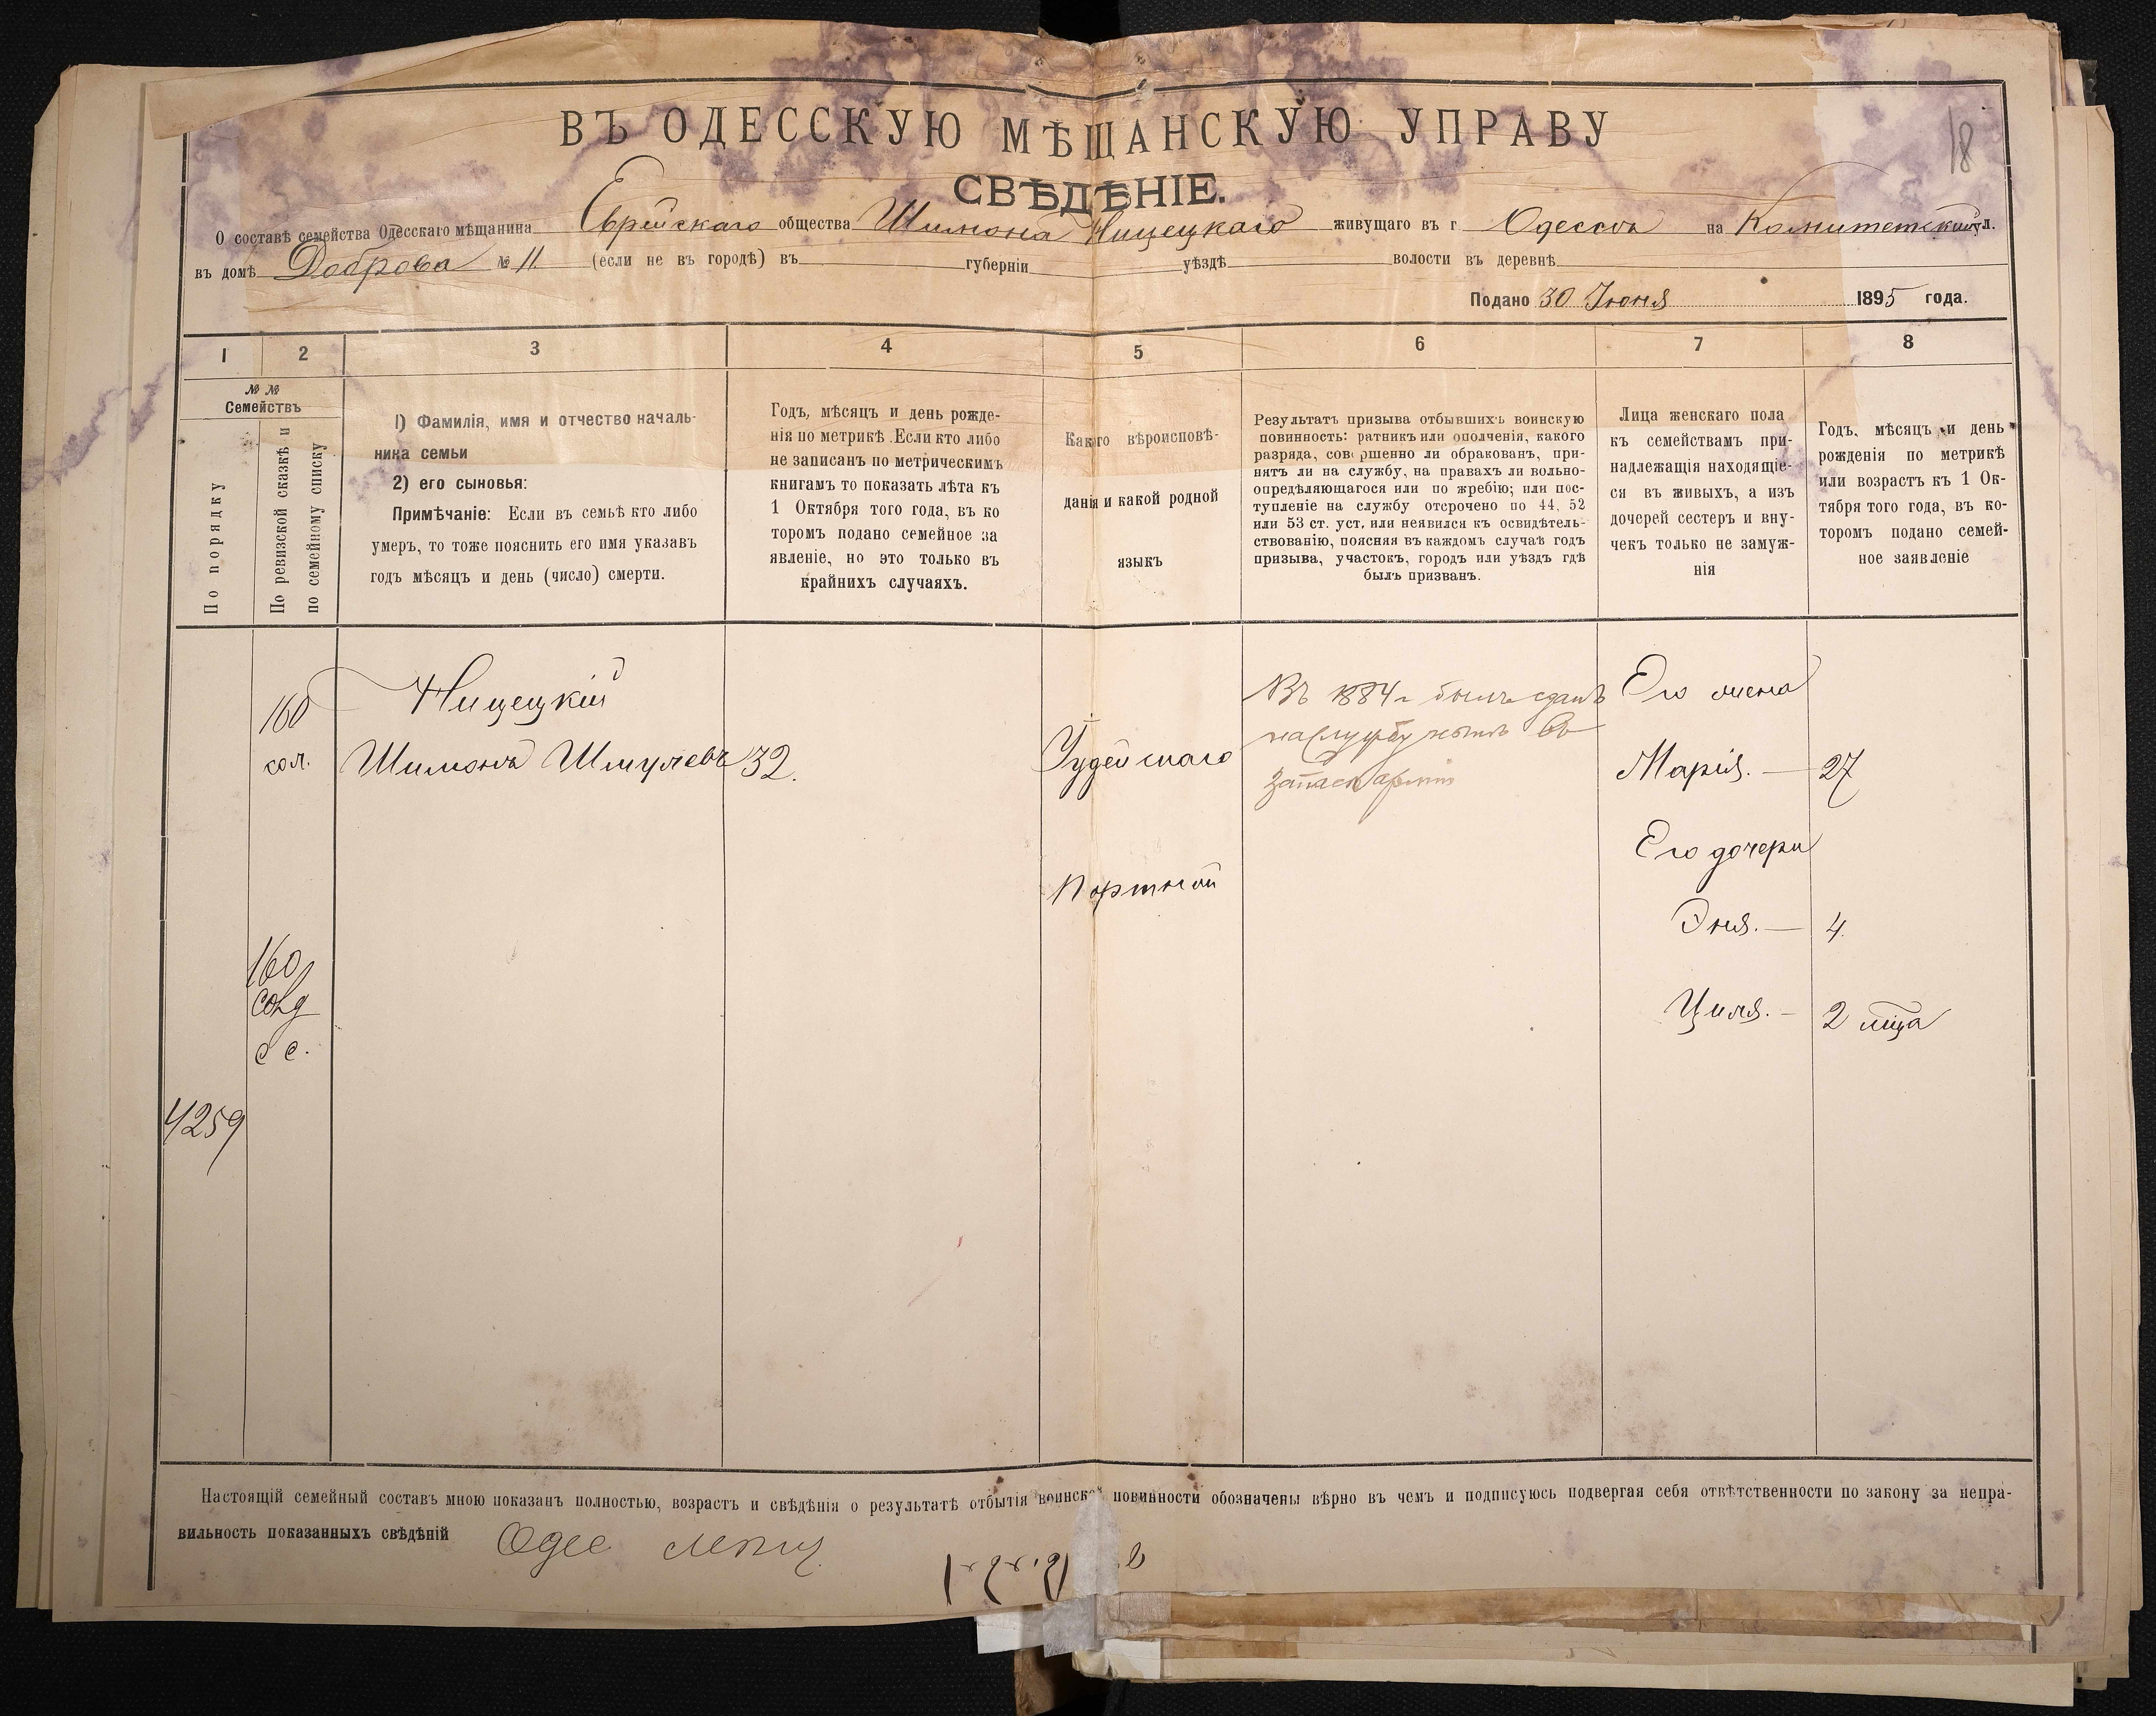 18
ВЪ ОДЕССКУЮ МѢЩАНСКУЮ УПРАВУ
СВѢДѢНІЕ.
О составѣ семейства Одесскаго мѣщанина Еврейскаго общества Шимона Ницецкаго живущаго въ г. Одессѣ на Комитетской ул.
въ домѣ Доброва № 11. (если не въ городѣ) въ губерніи уѣздѣ волости въ деревнѣ
Подано 30 Іюня 1895 года.
1 2 3 4 5 6 7 8
№ №
Семействъ
По порядку
По ревизской сказкѣ и
по семейному списку
1) Фамилія, имя и отчество началь-
ника семьи
2) его сыновья:
Примѣчаніе: Если въ семьѣ кто либо
умеръ, то тоже пояснить его имя указавъ
годъ мѣсяцъ и день (число) смерти.
Годъ, мѣсяцъ и день рожде-
нія по метрикѣ. Если кто либо
не записанъ по метрическимъ
книгамъ то показать лѣта къ
1 Октября того года, въ ко
торомъ подано семейное за
явленіе, но это только въ
крайнихъ случаяхъ.
Какого вѣроисповѣ-
данія и какой родной
языкъ
Результатъ призыва отбывшихъ воинскую
повинность: ратникъ или ополченія, какого
разряда, совершенно ли обракованъ, при-
нятъ ли на службу, на правахъ ли вольно-
опредѣляющагося или по жребію; или пос-
тупленіе на службу отсрочено по 44, 52
или 53 ст. уст. или неявился къ освидѣтель-
ствованію, поясняя въ каждомъ случаѣ годъ
призыва, участокъ, городъ или уѣздъ гдѣ
былъ призванъ.
Лица женскаго пола
къ семействамъ при-
надлежащія находящіе-
ся въ живыхъ, а изъ
дочерей сестеръ и вну-
чекъ только не замуж-
нія
Годъ, мѣсяцъ и день
рожденія по метрикѣ
или возрастъ къ 1 Ок-
тября того года, въ ко-
торомъ подано семей-
ное заявленіе
160
Ницецкій
Шимонъ Шмулевъ 32.
Іудейскаго
Портной
Въ 1884 г былъ сданъ
на службу нынѣ въ
запасѣ арміи
Его жена
Марія. — 27
Его дочери
Эня. — 4.
Циля. — 2 мѣца
160
с с.
4259
Настоящій семейный составъ мною показанъ полностью, возрастъ и свѣдѣнія о результатѣ отбытія воинской повинности обозначены вѣрно въ чемъ и подписуюсь подвергая себя отвѣтственности по закону за непра-
вильность показанныхъ свѣдѣній Одес мѣщ